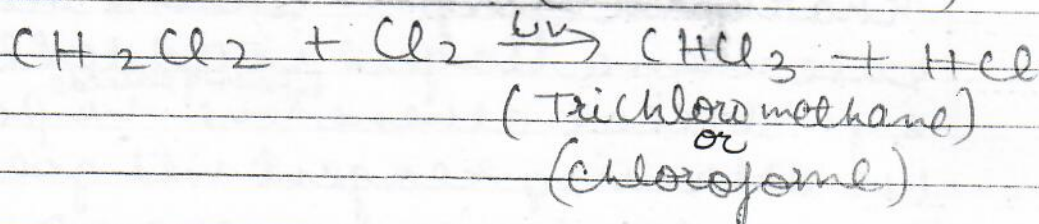 CH2Cl2 + Cl2 UV→ CHCl3 + HCl
(Trichloromethane)
or
(chlorofome)